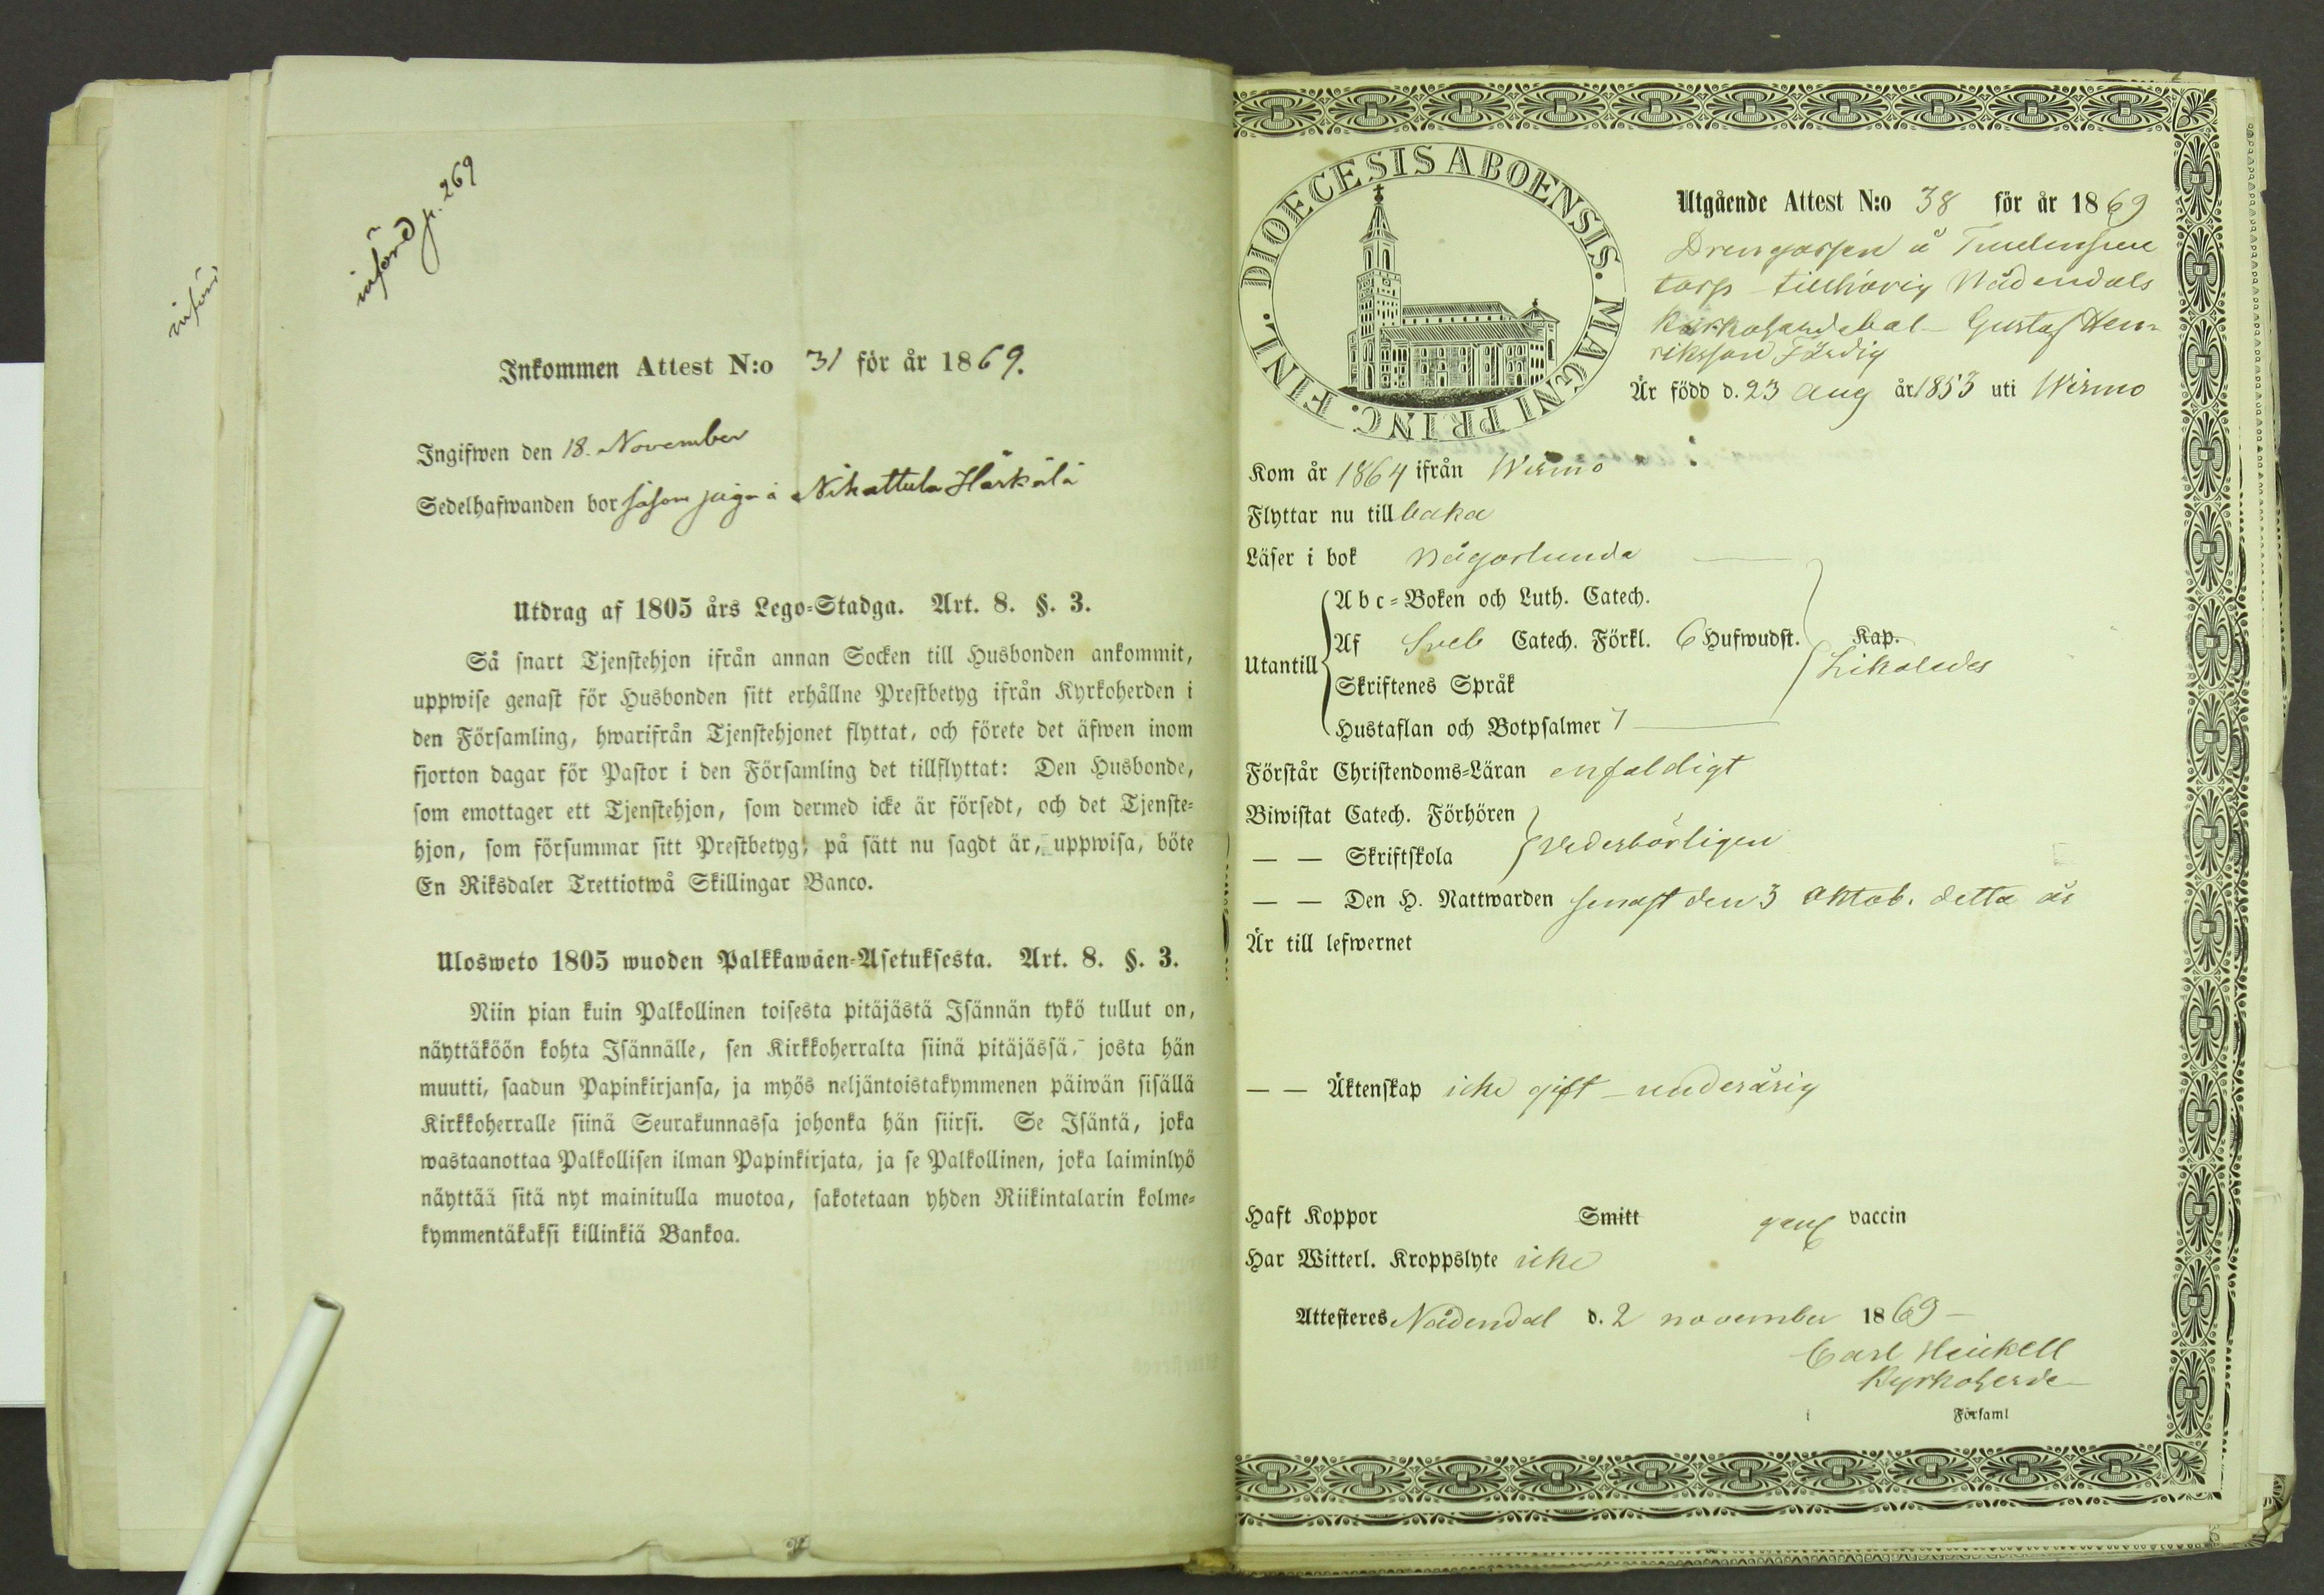 införd
införd p. 269
Inkommen Attest N:o 31 för år 1869.
Ingifwen den 18. November
Sedelhafwanden bor såsom piga å Nihattula Härkälä
Utdrag af 1805 års Lego-Stadga. Art. 8. §. 3.
Så snart Tjenstehjon ifrån annan Socken till Husbonden ankommit,
uppwise genast för Husbonden sitt erhållne Prestbetyg ifrån Kyrkoherden i
den Församling, hwarifrån Tjenstehjonet flyttat, och förete det äfwen inom
fjorton dagar för Pastor i den Församling det tillflyttat: Den Husbonde,
som emottager ett Tjenstehjon, som dermed icke är försedt, och det Tjenste-
hjon, som försummar sitt Prestbetyg, på sätt nu sagdt är, uppwisa, böte
En Riksdaler Trettiotwå Skillingar Banco.
Ulosweto 1805 wuoden Palkkawäen-Asetuksesta. Art. 8. §. 3.
Niin pian kuin Palkollinen toisesta pitäjästä Isännän tykö tullut on,
näyttäköön kohta Isännälle, sen Kirkkoherralta siinä pitäjässä, josta hän
muutti, saadun Papinkirjansa, ja myös neljäntoistakymmenen päiwän sisällä
Kirkkoherralle siinä Seurakunnassa johonka hän siirsi. Se Isäntä, joka
wastaanottaa Palkollisen ilman Papinkirjata, ja se Palkollinen, joka laiminlyö
näyttää sitä nyt mainitulla muotoa, sakotetaan yhden Riikintalarin kolme-
kymmentäkaksi killinkiä Bankoa.
DIOECESIS ABOENSIS. MAGNI PRINC. FINL.
Utgående Attest N:o 38 för år 1869
Drengossen å
torp tillhörig Nådendals
Gustaf Hen-
riksson Färdig
Är född d. 23 Aug år 1853 uti Wirmo
Kom år 1864 ifrån Wirmo
Flyttar nu tillbaka
Läser i bok någorlunda
Abc-Boken och Luth. Catech.
Utantill Af Sveb Catech. Förkl. 6 Hufwudst. Kap.
Likaledes
Skriftenes Språk
Hustaflan och Botpsalmer 7
Förstår Christendoms-Läran enfaldigt
Biwistat Catech. Förhören
— — Skriftskola vederbörligen
— — Den H. Nattwarden senast den 3 Oktob. detta år
Är till lefwernet
— — Äktenskap icke gift – underårig
Haft Koppor Smitt genom vaccin
Har Witterl. Kroppslyte icke
Attesteres Nådendal d. 2 november 1869
Carl Heickell
Kyrkoherde
i Församl